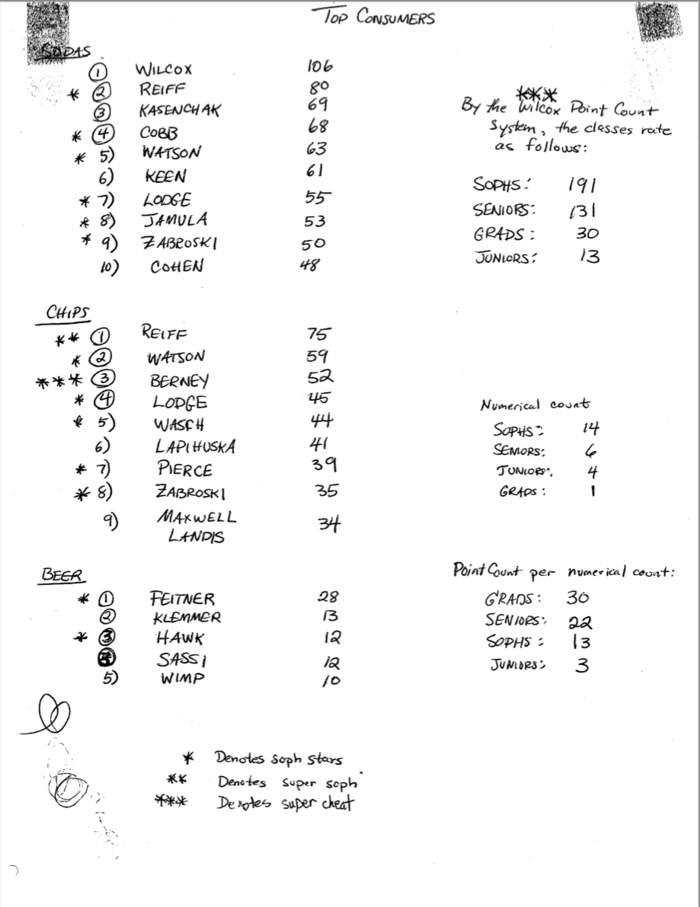 TOP CONSUMERS
SODAS
① WILCOX 106
* ② REIFF 80
③ KASENCHAK 69
* ④ COBB 68
* 5) WATSON 63
6) KEEN 61
* 7) LODGE 55
* 8) JAMULA 53
* 9) ZABROSKI 50
10) COHEN 48
CHIPS
** ① REIFF 75
* ② WATSON 59
*** ③ BERNEY 52
* ④ LODGE 45
* 5) WASCH 44
6) LAPIHUSKA 41
* 7) PIERCE 39
* 8) ZABROSKI 35
9) MAXWELL 34
LANDIS
BEER
* ① FEITNER 28
② KLEMMER 13
* ③ HAWK 12
④ SASSI 12
5) WIMP 10
* Denotes soph stars
** Denotes super soph
*** Denotes super cheat
***
By the Wilcox Point Count
System, the classes rate
as follows:
SOPHS: 191
SENIORS: 131
GRADS: 30
JUNIORS: 13
Numerical count
SOPHS: 14
SENIORS: 6
JUNIORS: 4
GRADS: 1
Point Count per numerical count:
GRADS: 30
SENIORS: 22
SOPHS: 13
JUNIORS: 3